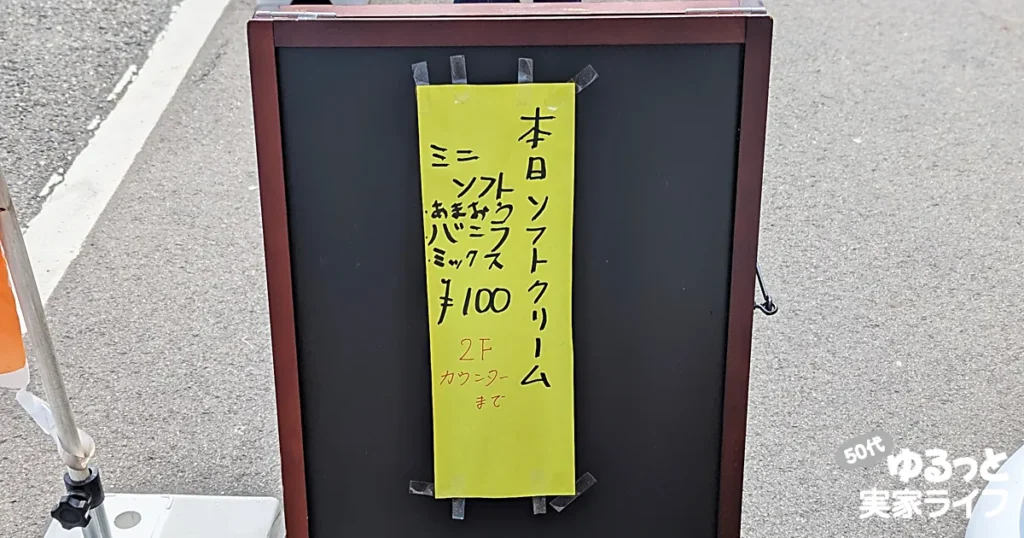 本日ソフトクリーム
ミニ
ソフト
・あまおう
・バニラ
・ミックス
¥100
2F
カウンター
まで
50代
ゆるっと
実家ライフ